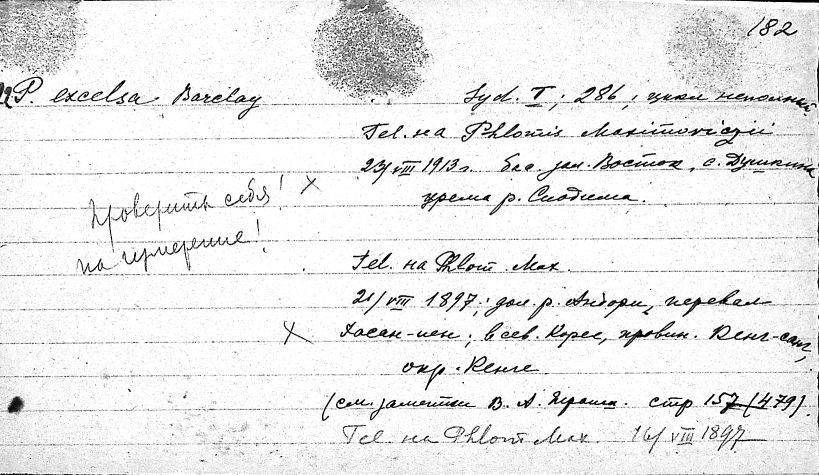 182
P. excelsa Barclay
Syd. I; 286; цикл неполный
Tel. на Phlomis Maximoviczii
23/VIII 1913 г. бас. зал. Восток, с. Душкина
урема р.
Проверить себя! X
на измерение!
Tel. на Phlom. Max.
21/VIII 1897; дол. р. перевал
X в сев. Корее, провин. Кенг-санг,
окр. Кенге.
(см. заметки В. А. стр. 157 (479).
Tel. на Phlom. Max. 16/VIII 1897